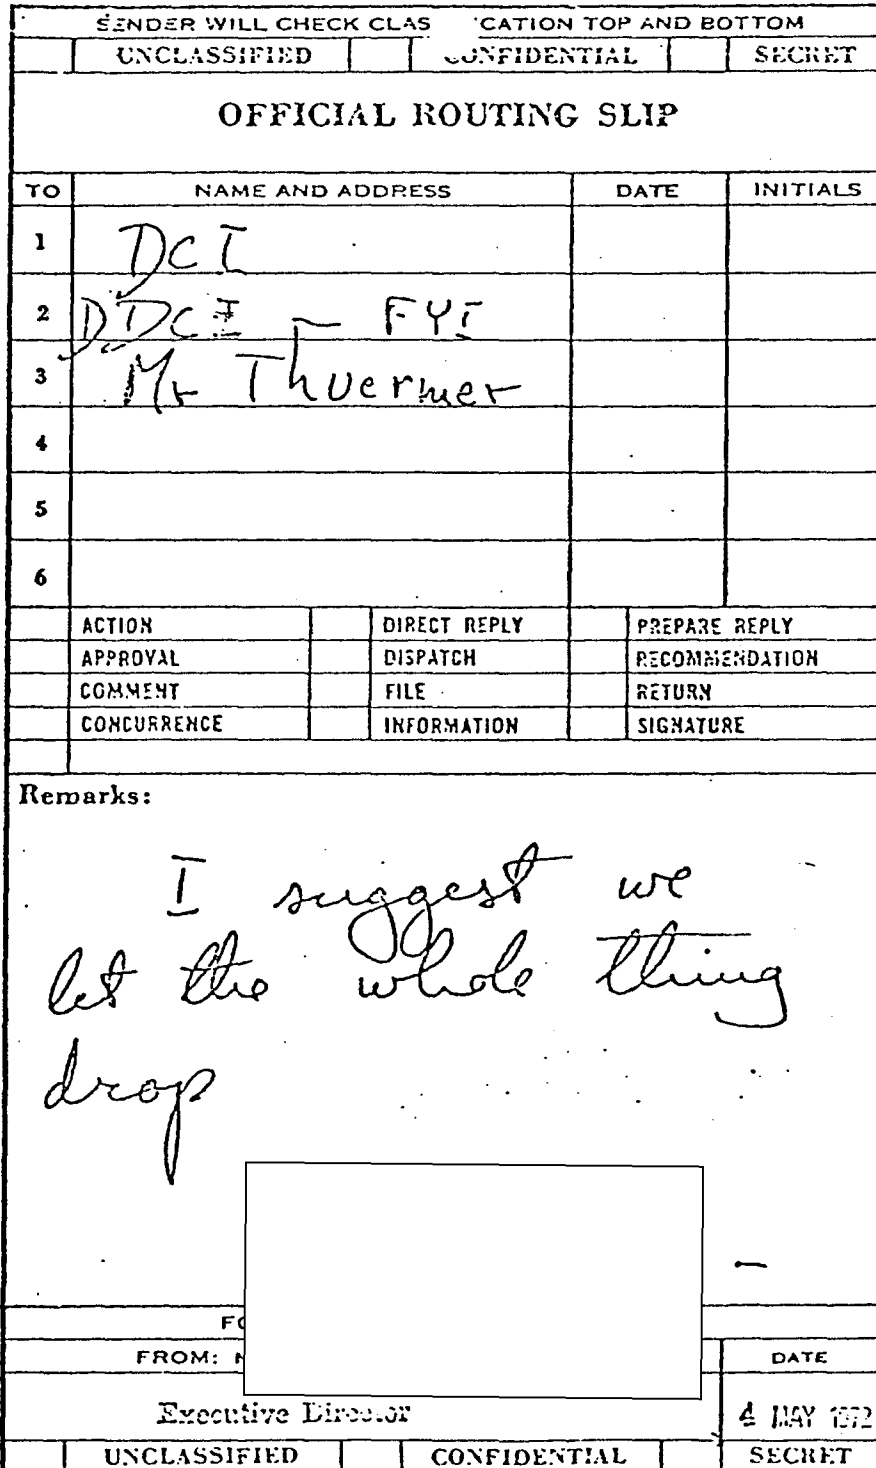 SENDER WILL CHECK CLAS 'CATION TOP AND BOTTOM
UNCLASSIFIED CONFIDENTIAL SECRET
OFFICIAL ROUTING SLIP
TO NAME AND ADDRESS DATE INITIALS
1 DCI
2 DDCI — FYI
3 Mr Thuermer
4
5
6
ACTION DIRECT REPLY PREPARE REPLY
APPROVAL DISPATCH RECOMMENDATION
COMMENT FILE RETURN
CONCURRENCE INFORMATION SIGNATURE
Remarks:
I suggest we
let the whole thing
drop
FROM: DATE
Executive Director 4 MAY 1972
UNCLASSIFIED CONFIDENTIAL SECRET